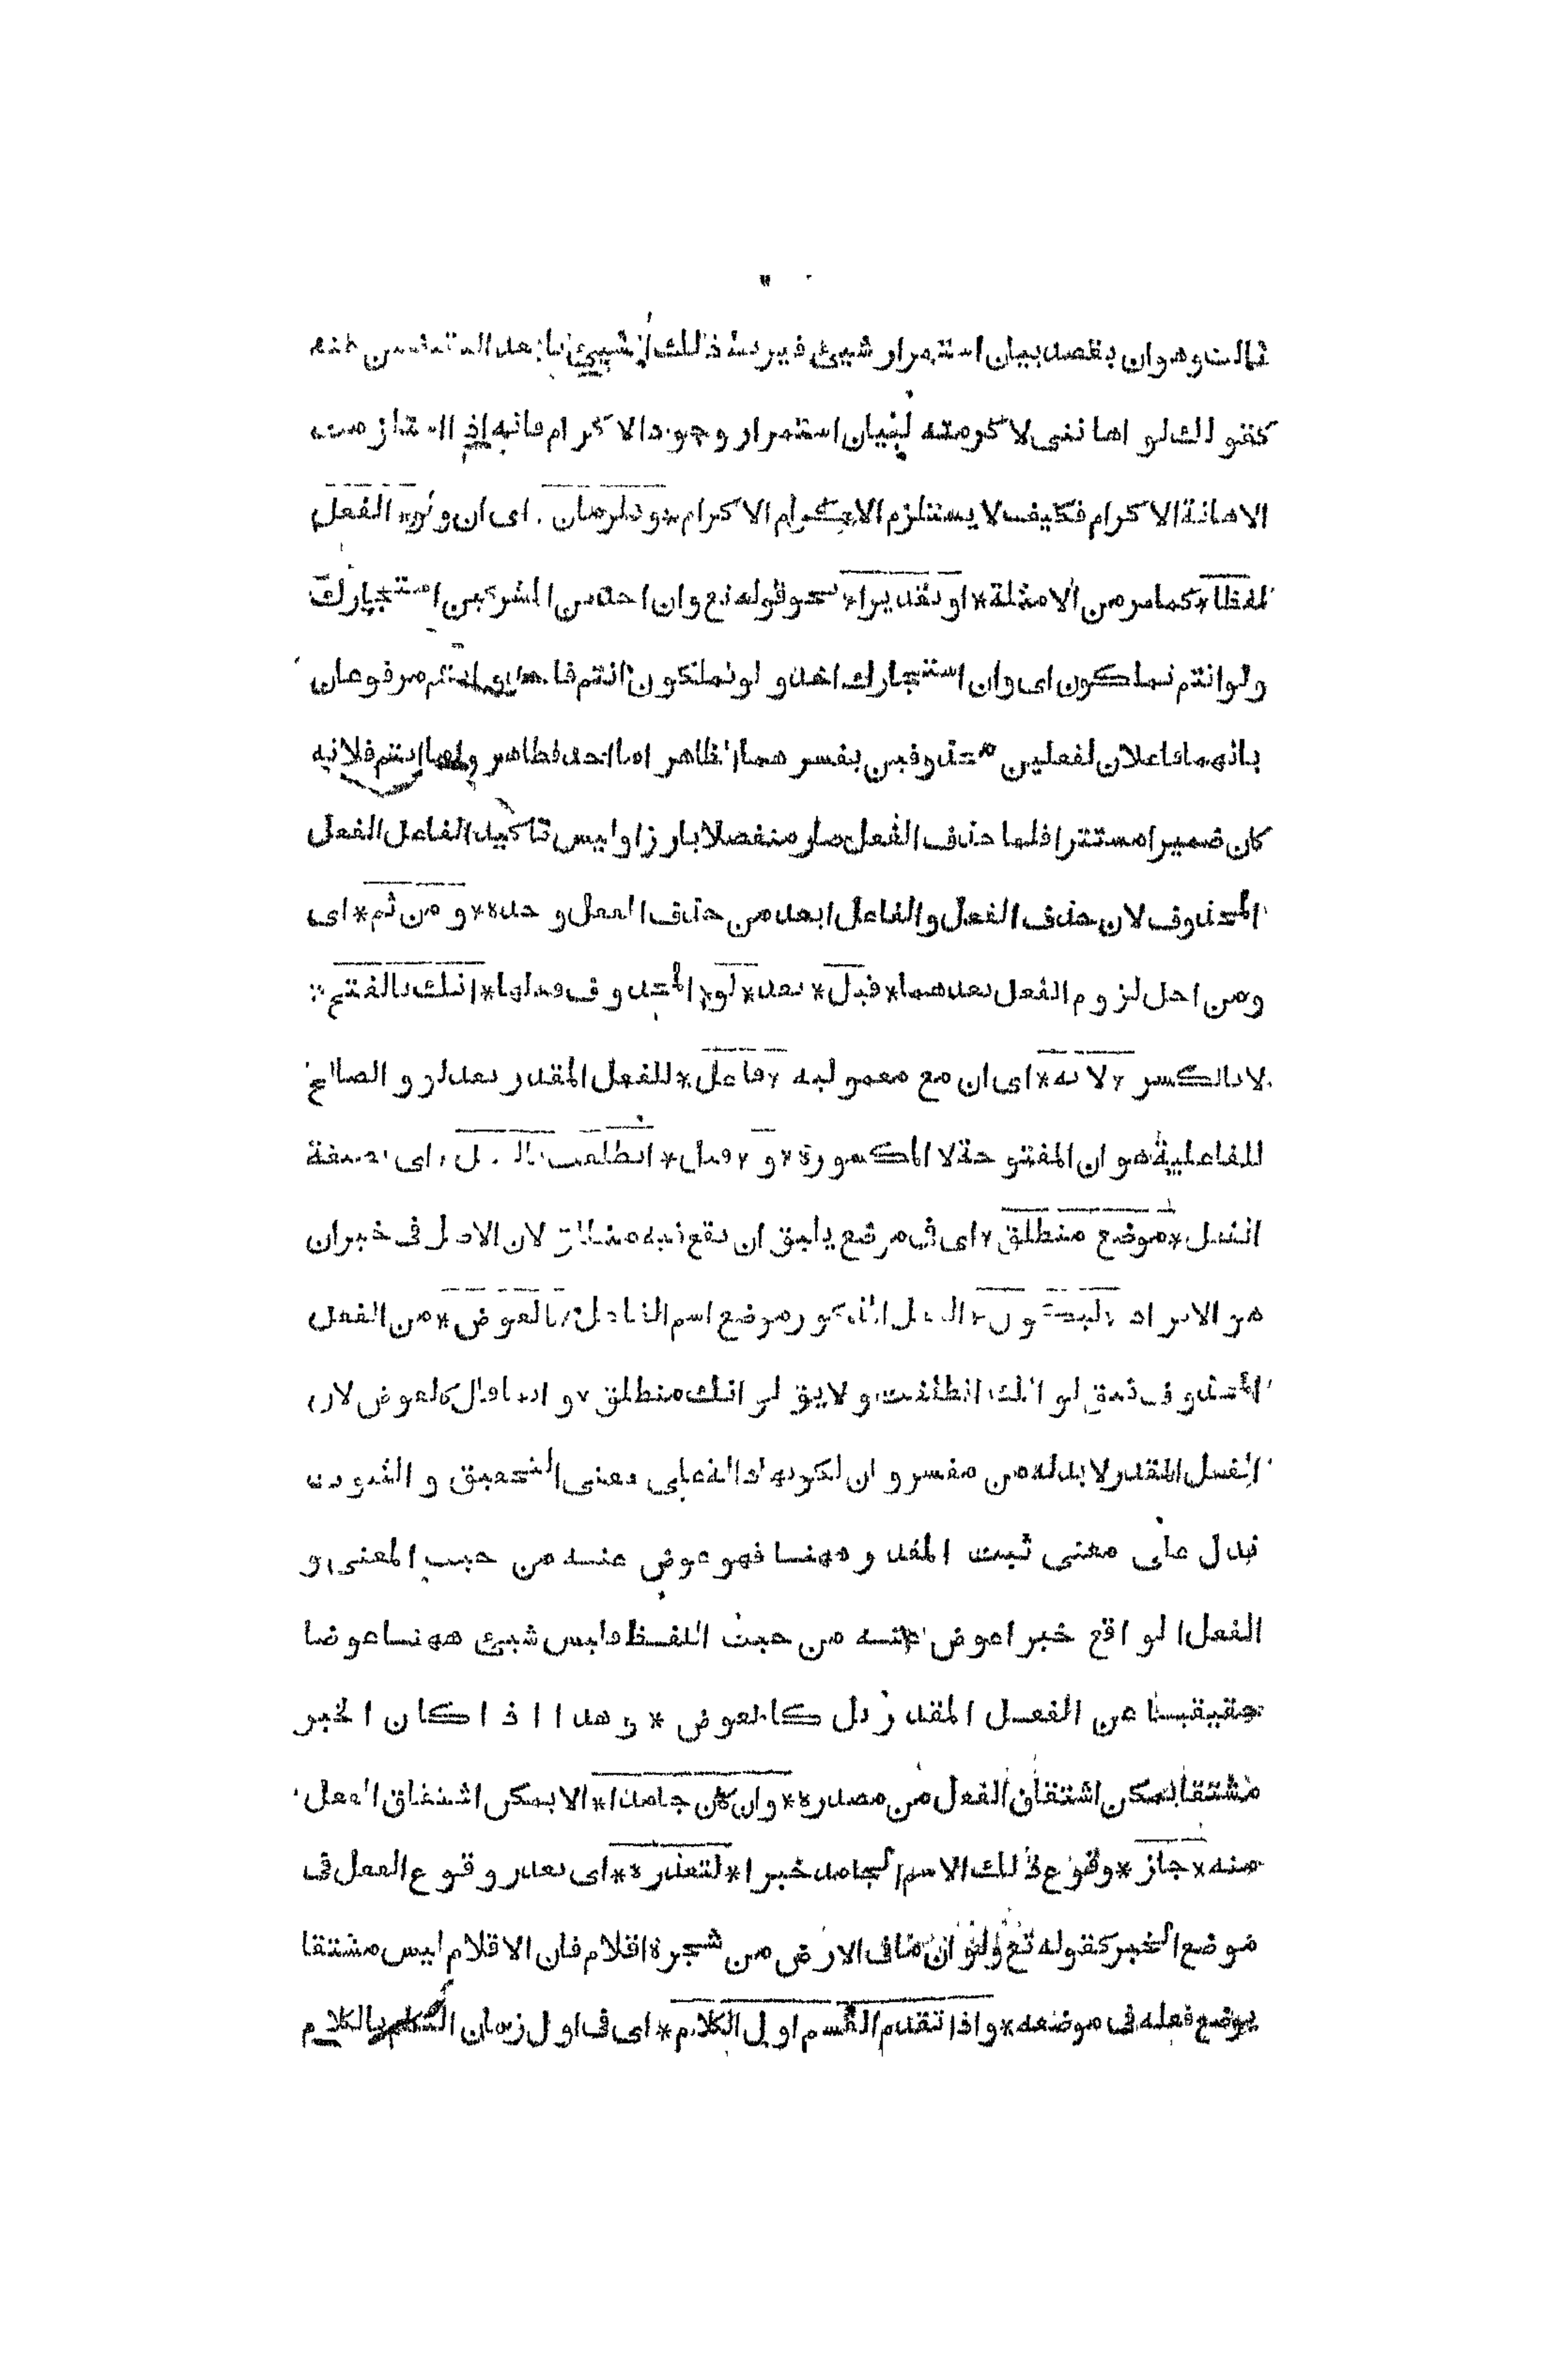 ثالث وهو ان يقصد بيان استمرار شيئ فيربط ذلك الشيئ بابعد النقيضين عنه
كقولك لو اهانني لاكرمته لبيان استمرار وجود الاكرام فانه اذا استلزمت
الاهانة الاكرام فكيف لا يستلزم الاكرام الاكرام * وتلزمان . اى ان ولو * الفعل
لفظا * كما مر من الامثلة * او تقديرا * نحو قوله تع وان احد من المشركين استجارك
ولو انتم تملكون اى وان استجارك احد و لو تملكون انتم فاحد وانتم مرفوعان
بانهما فاعلان لفعلين محذوفين يفسرهما الظاهر اما احد فظاهر واما انتم فلانه
كان ضميرا مستترا فلما حذف الفعل صار منفصلا بارزا وليس تاكيد الفاعل الفعل
المحذوف لان حذف الفعل والفاعل ابعد من حذف الفعل و حده * و من ثم * اى
ومن اجل لزوم الفعل بعدهما * قيل * بعد * لو * المحذوف فعلها * انك بالفتح *
لا بالكسر * لانه * اى ان مع معموليه * فاعل * للفعل المقدر بعد لو و الصالح
للفاعلية هو ان المفتوحة لا المكسورة * و * قيل * انطلقت بالفعل * اى بصيغة
الفعل * موضع منطلق * اى فى موضع يليق ان يقع فيه منطلق لان الاصل فى خبر ان
هو الافراد * ليكون * الفعل المذكور موضع اسم الفاعل * كالعوض * من الفعل
المحذوف فيق لو انك انطلقت و لا يق لو انك منطلق * و انما قال كالعوض لان
الفعل المقدر لا بد له من مفسر و ان لكونها دالة على معنى التحقيق و الثبوت
تدل على معنى ثبت المقدر ههنا فهو عوض عنه من حيث المعنى و
الفعل الواقع خبرا عوض عنه من حيث اللفظ فليس شيئ ههنا عوضا
حقيقيا عن الفعل المقدر بل كالعوض * و هذا اذا كان الخبر
مشتقا يمكن اشتقاق الفعل من مصدره * وان كان جامدا * لا يمكن اشتقاق الفعل
منه * جاز * وقوع ذلك الاسم الجامد خبرا * لتعذره * اى تعذر وقوع الفعل فى
موضع الخبر كقوله تع ولو ان ما فى الارض من شجرة اقلام فان الاقلام ليس مشتقا
يوضع فعله فى موضعه * واذا تقدم القسم اول الكلام * اى فى اول زمان التكلم بالكلام